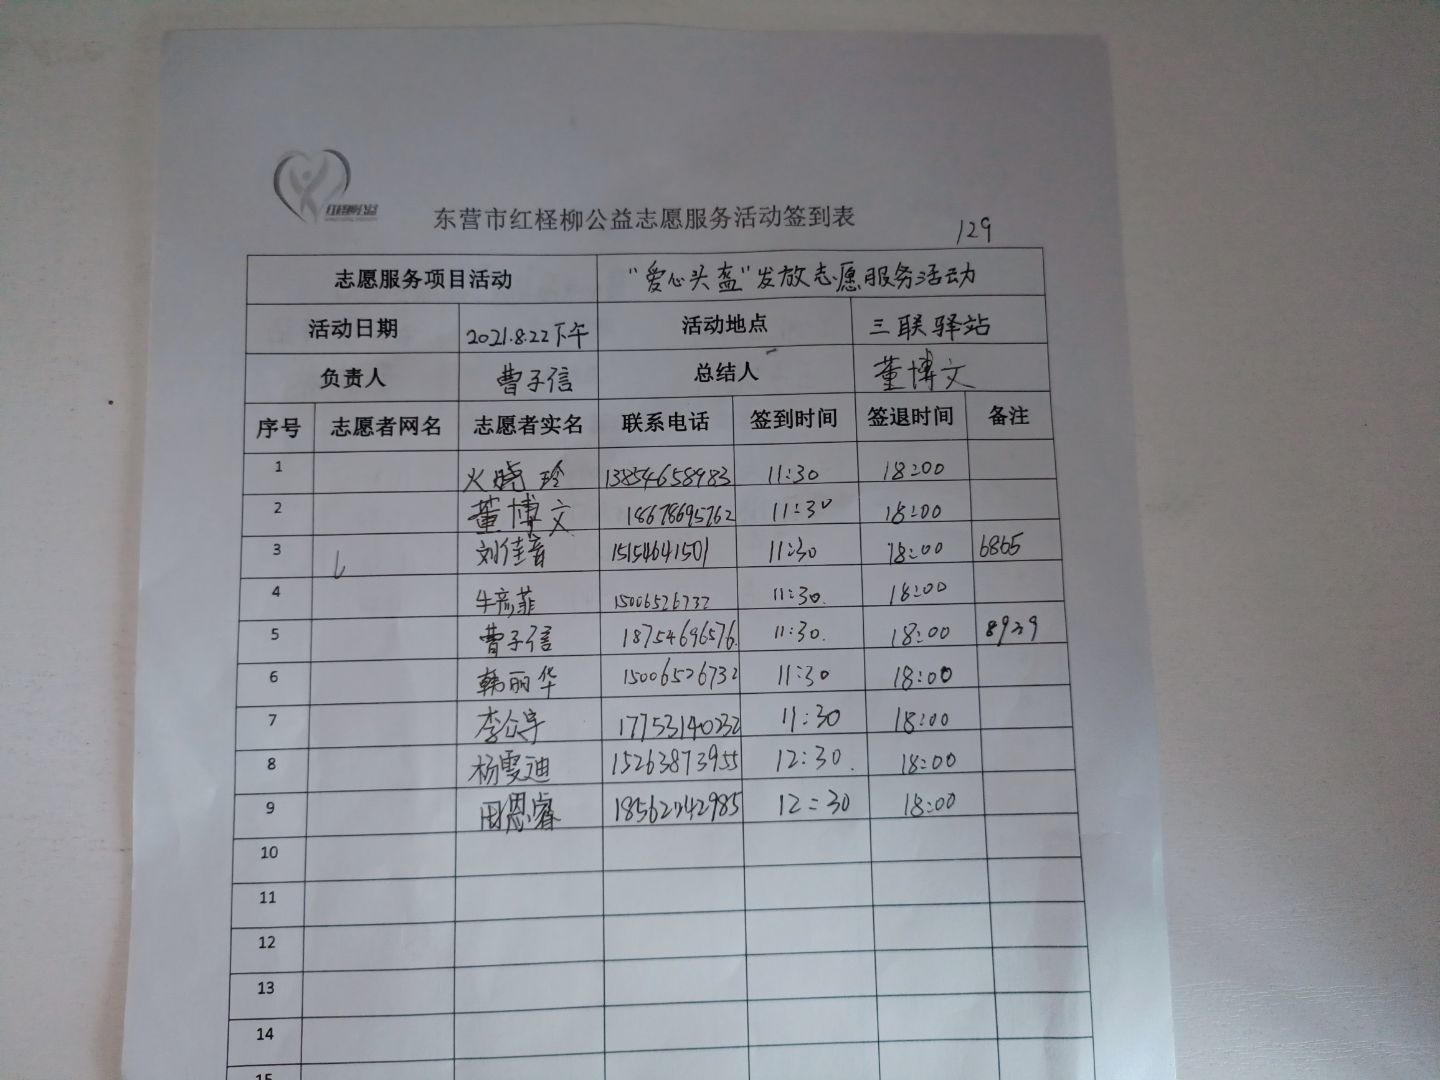 红柽柳公益
东营市红柽柳公益志愿服务活动签到表
129
志愿服务项目活动 "爱心头盔"发放志愿服务活动
活动日期 2021.8.22下午 活动地点 三联驿站
负责人 曹子信 总结人 董博文
序号 志愿者网名 志愿者实名 联系电话 签到时间 签退时间 备注
1 火晓玲 13854658983 11:30 18:00
2 董博文 18678695762 11:30 18:00
3 刘佳音 15154641501 11:30 18:00 6865
4 牛彦菲 15006526732 11:30. 18:00
5 曹子信 18754696576 11:30. 18:00 8939
6 韩丽华 15006526732 11:30 18:00
7 17753140232 11:30 18:00
8 杨雯迪 15263873955 12:30. 18:00
9 田恩睿 18562742985 12:30 18:00
10
11
12
13
14
15